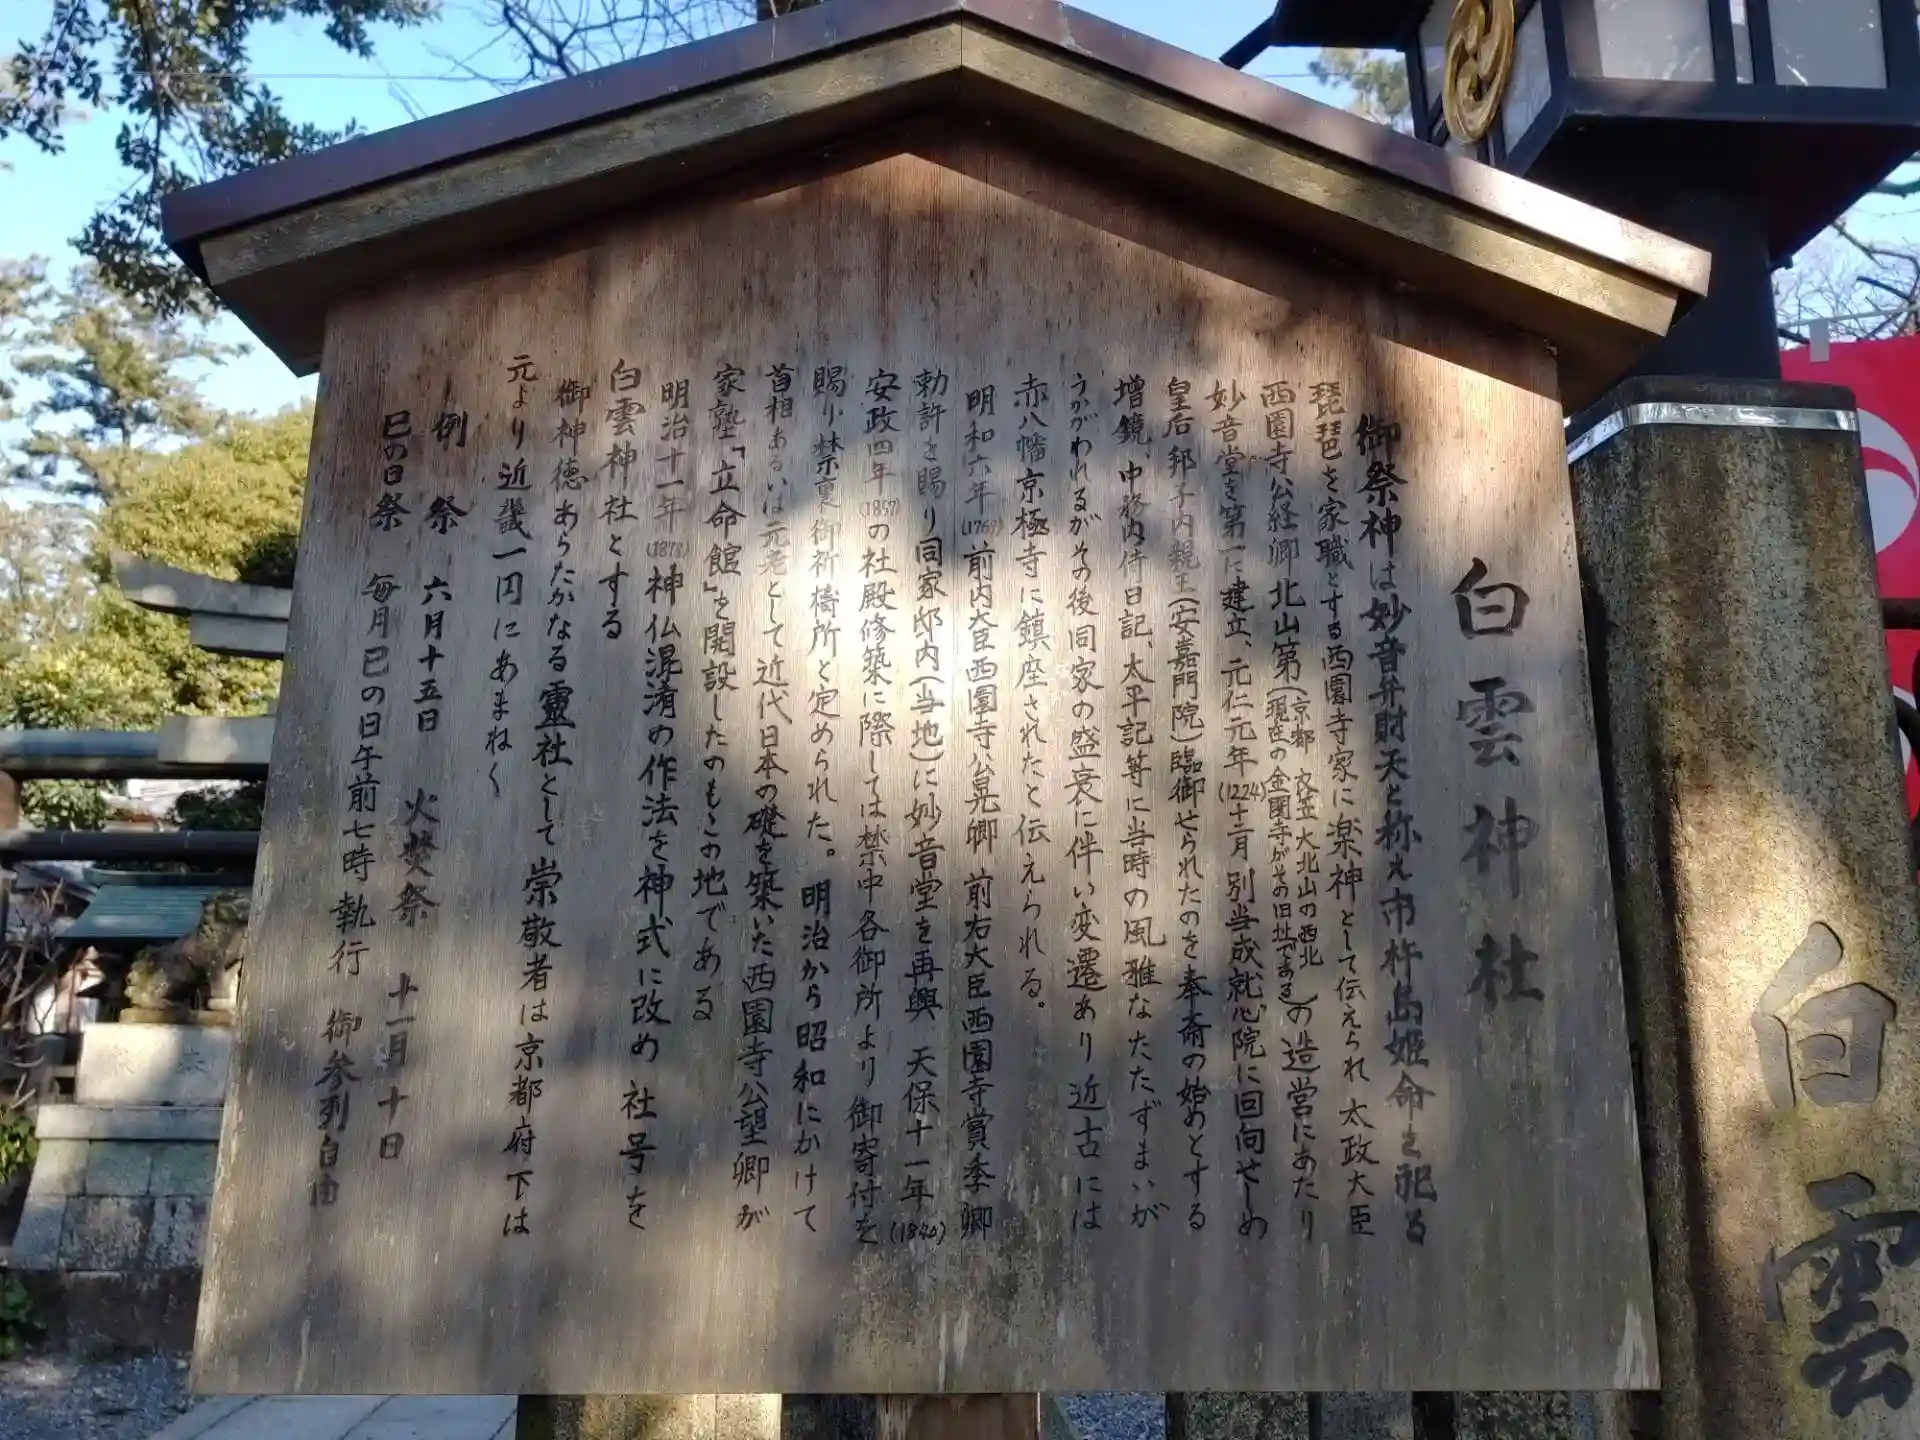 白雲神社
御祭神は妙音弁財天と称え市杵島姫命を祀る
琵琶を家職とする西園寺家に楽神として伝えられ 太政大臣
西園寺公経卿北山第(京都 衣笠 大北山の西北 現在の金閣寺がその旧址である)の造営にあたり
妙音堂を第一に建立、元仁元年(1224)十二月別当成就心院に回向せしめ
皇后邦子内親王(安嘉門院)臨御せられたのを奉斎の始めとする
増鏡、中務内侍日記、太平記等に当時の風雅なたたずまいが
うかがわれるがその後同家の盛衰に伴い変遷あり近古には
赤八幡京極寺に鎮座されたと伝えられる。
明和六年(1769)前内大臣西園寺公晃卿 前右大臣西園寺賞季卿
勅許を賜り同家邸内(当地)に妙音堂を再興、天保十一年(1840)
安政四年(1857)の社殿修築に際しては禁中各御所より御寄付を
賜り禁裏御祈禱所と定められた。明治から昭和にかけて
首相あるいは元老として近代日本の礎を築いた西園寺公望卿が
家塾「立命館」を開設したのもこの地である
明治十一年(1878)神仏混淆の作法を神式に改め 社号を
白雲神社とする
御神徳あらたかなる靈社として崇敬者は京都府下は
元より近畿一円にあまねく
例祭 六月十五日 火焚祭 十一月十日
巳の日祭 毎月巳の日午前七時執行 御参列自由
白雲